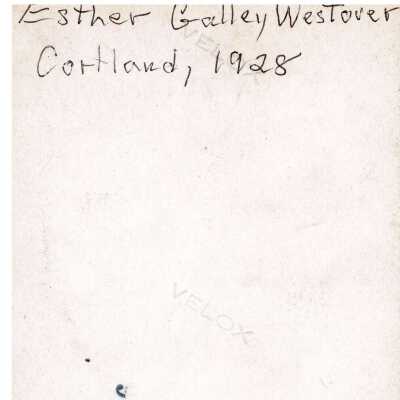 Esther Galley Westover
Cortland, 1928
VELOX
VELOX